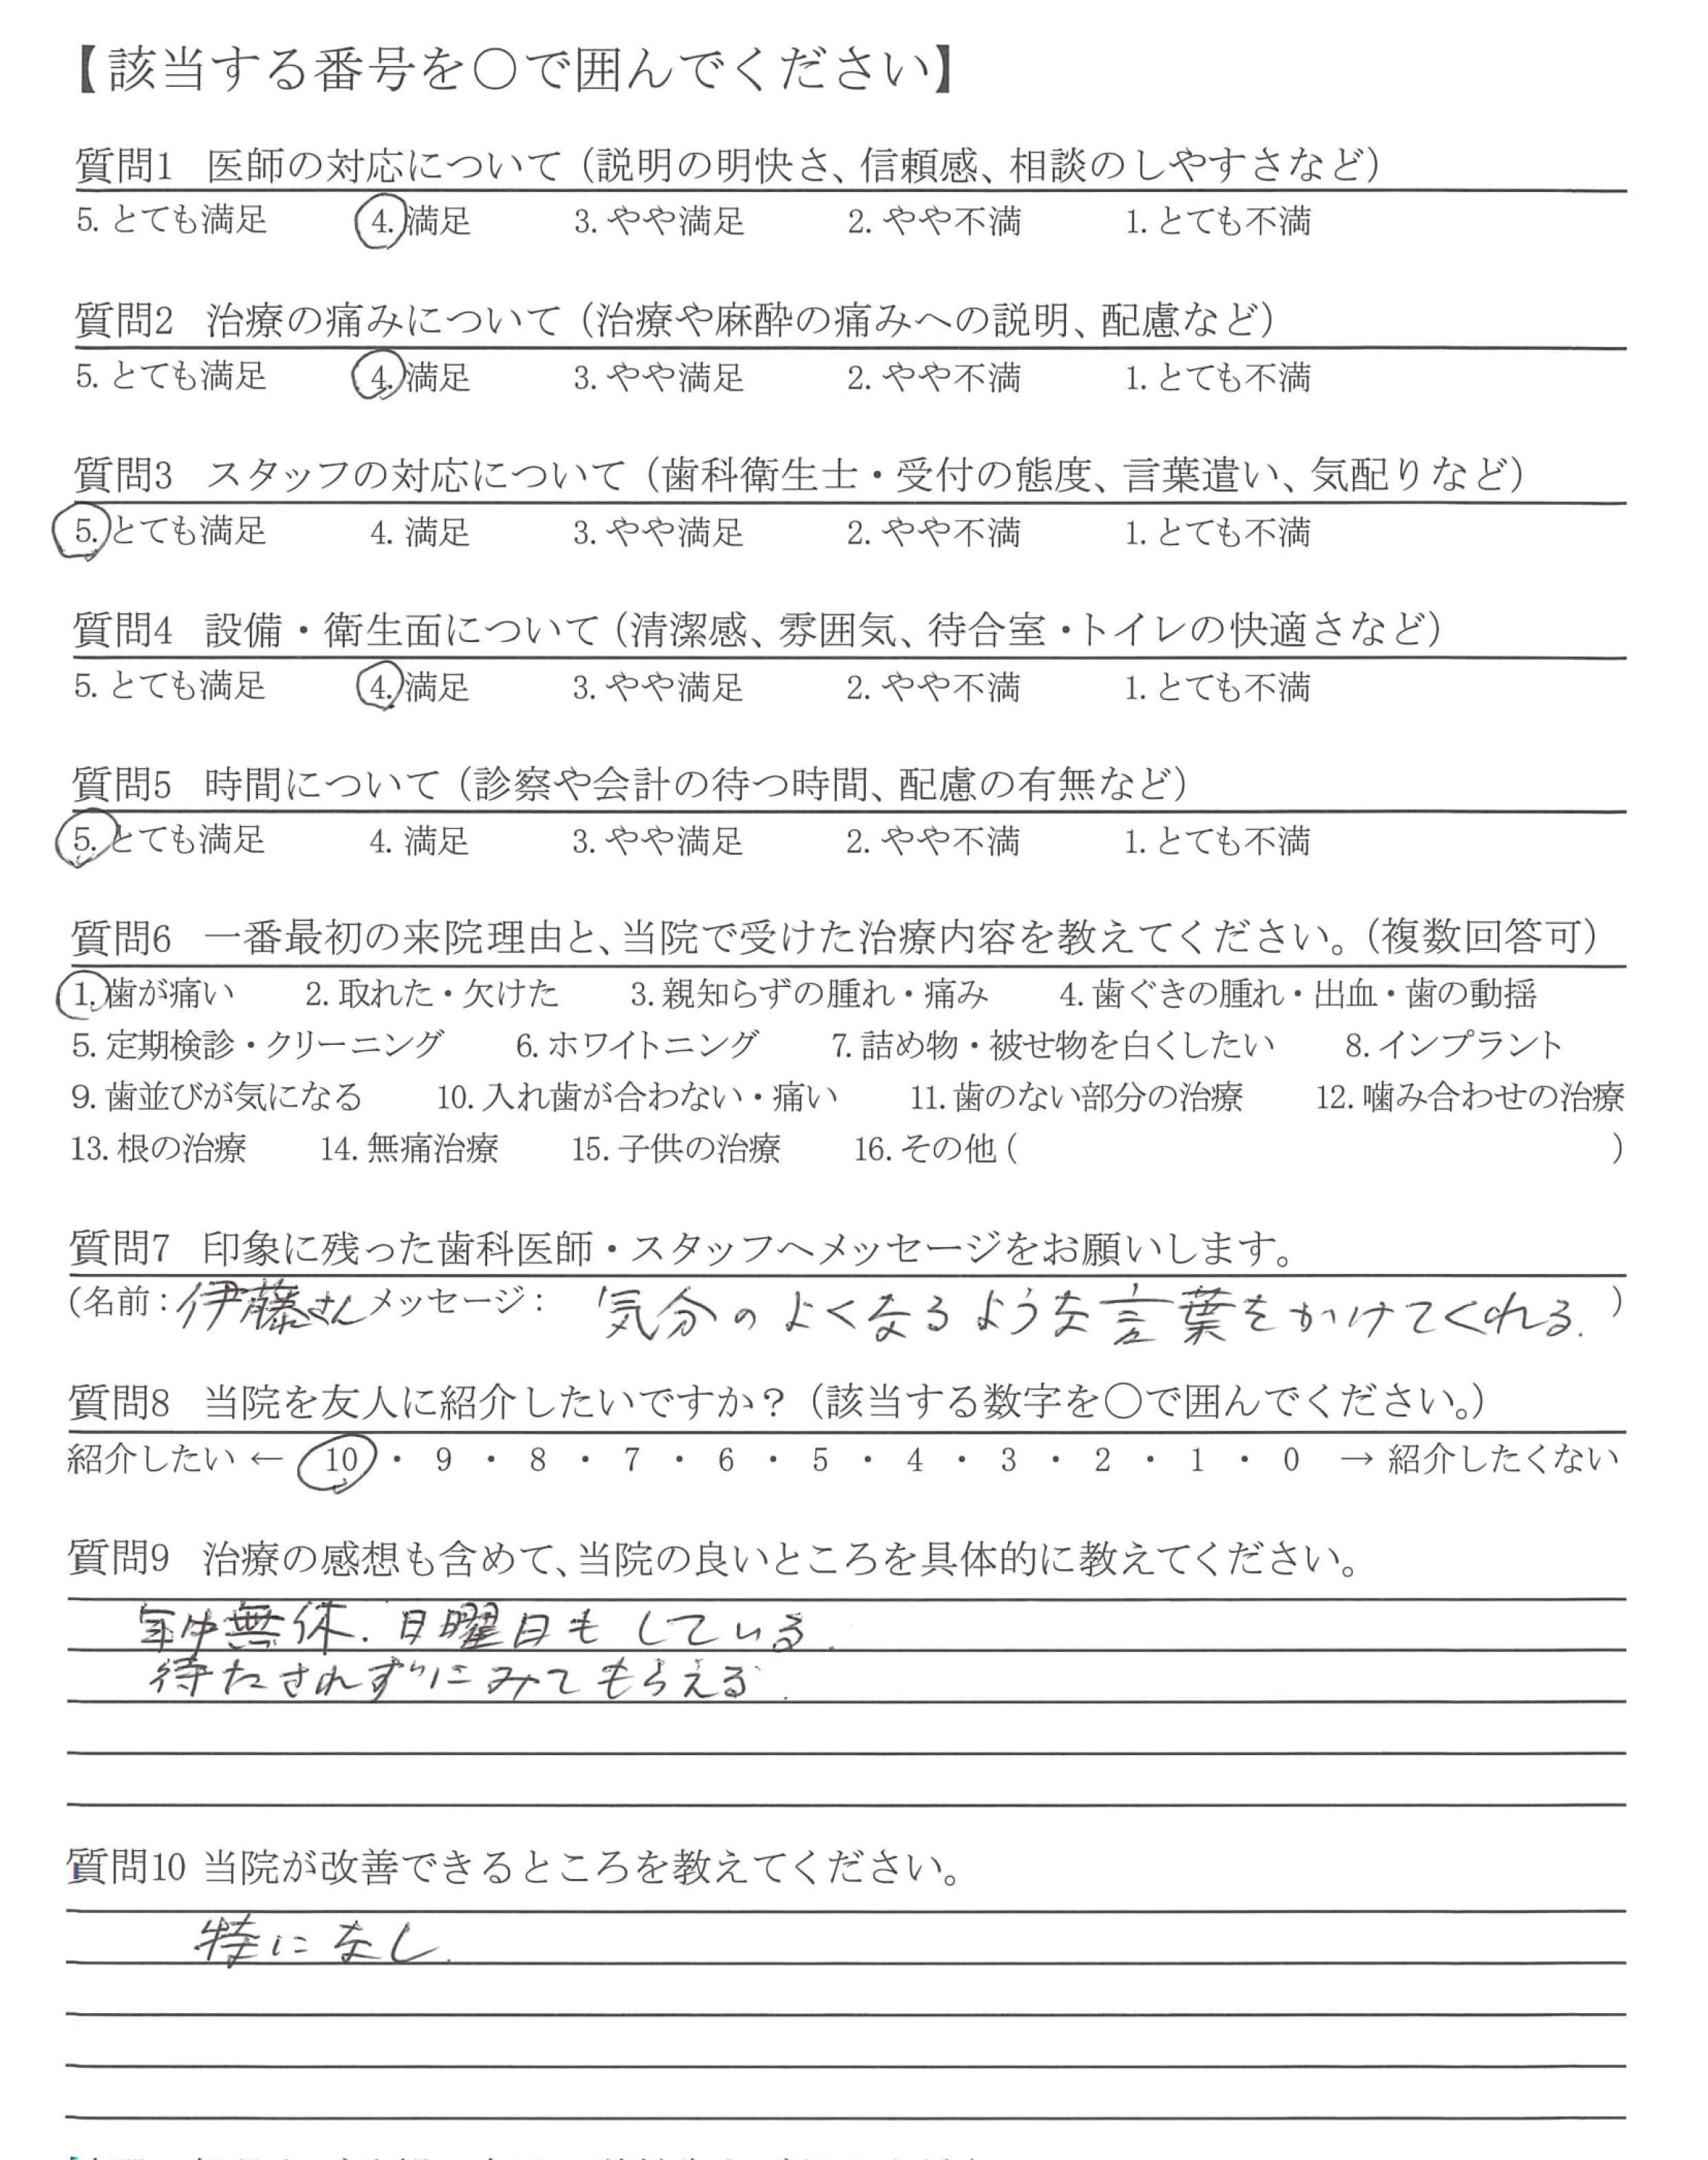 【該当する番号を〇で囲んでください】
質問1 医師の対応について（説明の明快さ、信頼感、相談のしやすさなど）
5. とても満足 4. 満足 3. やや満足 2. やや不満 1. とても不満
質問2 治療の痛みについて（治療や麻酔の痛みへの説明、配慮など）
5. とても満足 4. 満足 3. やや満足 2. やや不満 1. とても不満
質問3 スタッフの対応について（歯科衛生士・受付の態度、言葉遣い、気配りなど）
5. とても満足 4. 満足 3. やや満足 2. やや不満 1. とても不満
質問4 設備・衛生面について（清潔感、雰囲気、待合室・トイレの快適さなど）
5. とても満足 4. 満足 3. やや満足 2. やや不満 1. とても不満
質問5 時間について（診察や会計の待つ時間、配慮の有無など）
5. とても満足 4. 満足 3. やや満足 2. やや不満 1. とても不満
質問6 一番最初の来院理由と、当院で受けた治療内容を教えてください。（複数回答可）
1. 歯が痛い 2. 取れた・欠けた 3. 親知らずの腫れ・痛み 4. 歯ぐきの腫れ・出血・歯の動揺
5. 定期検診・クリーニング 6. ホワイトニング 7. 詰め物・被せ物を白くしたい 8. インプラント
9. 歯並びが気になる 10. 入れ歯が合わない・痛い 11. 歯のない部分の治療 12. 噛み合わせの治療
13. 根の治療 14. 無痛治療 15. 子供の治療 16. その他（ ）
質問7 印象に残った歯科医師・スタッフへメッセージをお願いします。
（名前：伊藤さん メッセージ： 気分のよくなるような言葉をかけてくれる. ）
質問8 当院を友人に紹介したいですか？（該当する数字を〇で囲んでください。）
紹介したい ← 10 ・ 9 ・ 8 ・ 7 ・ 6 ・ 5 ・ 4 ・ 3 ・ 2 ・ 1 ・ 0 → 紹介したくない
質問9 治療の感想も含めて、当院の良いところを具体的に教えてください。
年中無休. 日曜日もしている.
待たされずにみてもらえる.
質問10 当院が改善できるところを教えてください。
特になし.